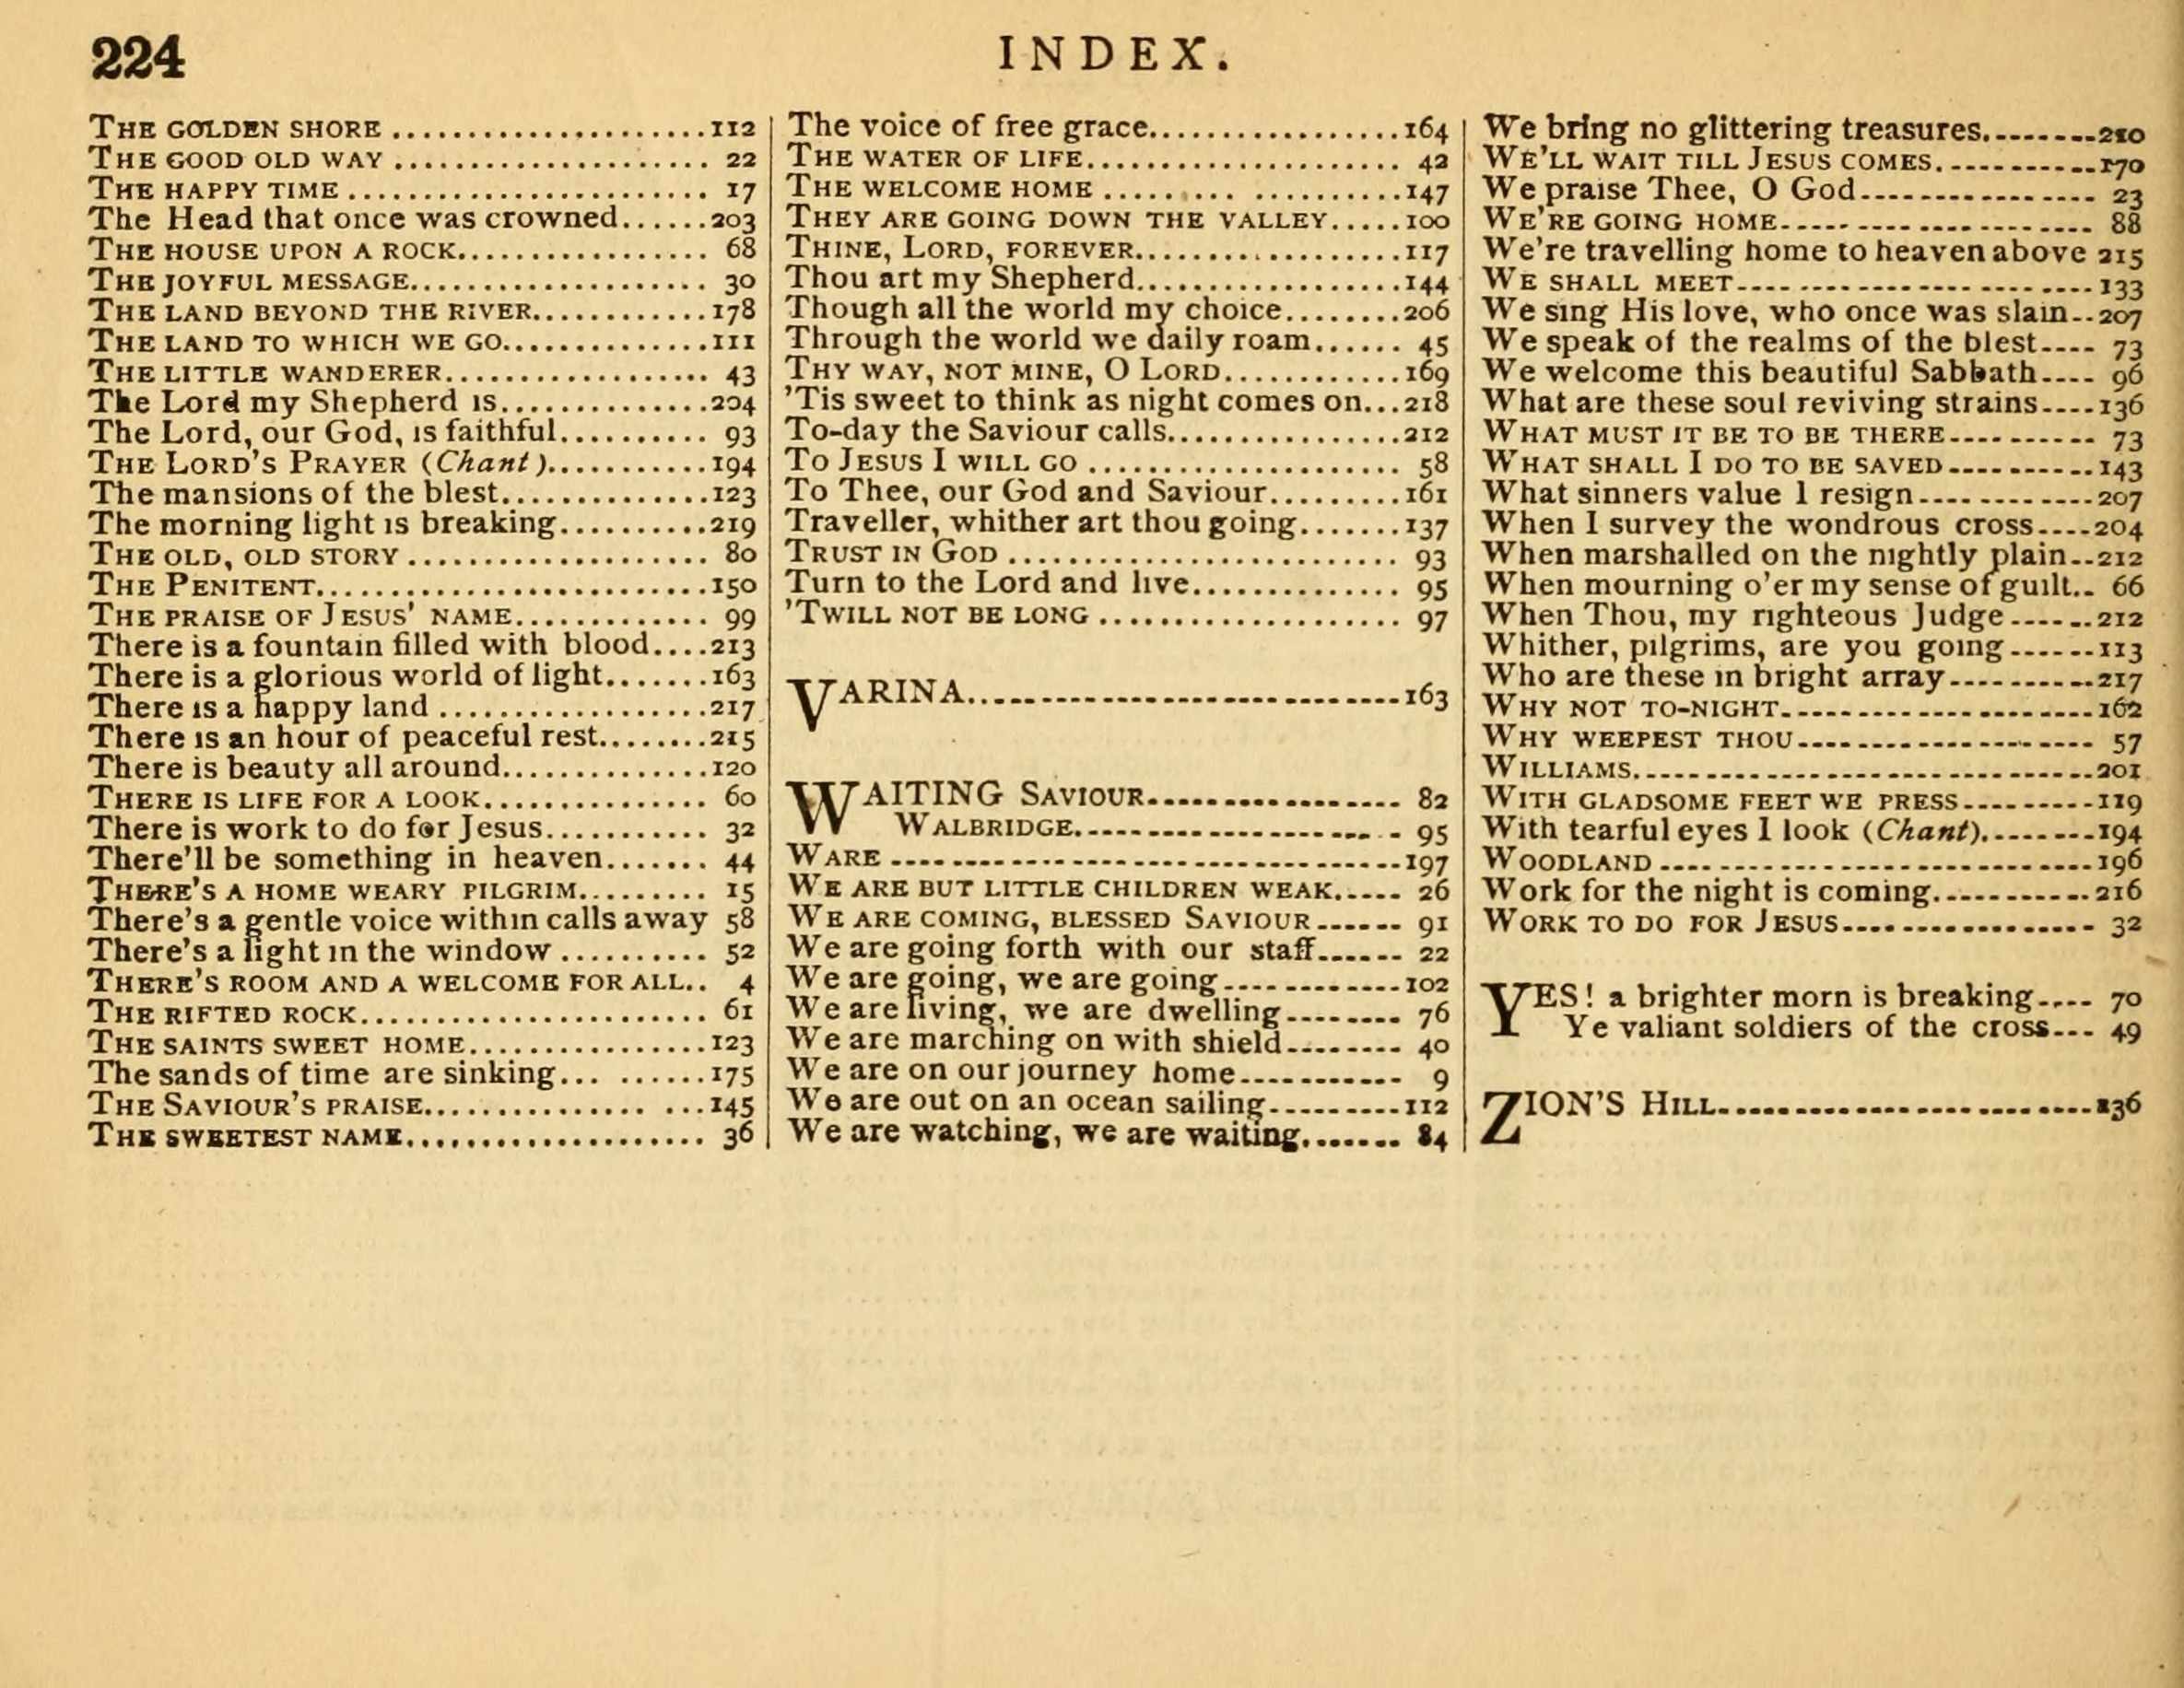 224
INDEX.
THE GOLDEN SHORE ......................112
THE GOOD OLD WAY ...................... 22
THE HAPPY TIME ......................... 17
The Head that once was crowned......203
THE HOUSE UPON A ROCK................. 68
THE JOYFUL MESSAGE.................... 30
THE LAND BEYOND THE RIVER............178
THE LAND TO WHICH WE GO..............111
THE LITTLE WANDERER.................. 43
The Lord my Shepherd is..............204
The Lord, our God, is faithful.......... 93
THE LORD'S PRAYER (Chant)...........194
The mansions of the blest..............123
The morning light is breaking..........219
THE OLD, OLD STORY .................... 80
THE PENITENT..........................150
THE PRAISE OF JESUS' NAME............. 99
There is a fountain filled with blood....213
There is a glorious world of light.......163
There is a happy land ..................217
There is an hour of peaceful rest........215
There is beauty all around..............120
THERE IS LIFE FOR A LOOK............... 60
There is work to do for Jesus........... 32
There'll be something in heaven....... 44
THERE'S A HOME WEARY PILGRIM......... 15
There's a gentle voice within calls away 58
There's a light in the window .......... 52
THERE'S ROOM AND A WELCOME FOR ALL.. 4
THE RIFTED ROCK....................... 61
THE SAINTS SWEET HOME................123
The sands of time are sinking... ......175
THE SAVIOUR'S PRAISE............... ...145
THE SWEETEST NAME.................... 36
The voice of free grace..................164
THE WATER OF LIFE..................... 42
THE WELCOME HOME ........ ............147
THEY ARE GOING DOWN THE VALLEY.....100
THINE, LORD, FOREVER..................117
Thou art my Shepherd..................144
Though all the world my choice........206
Through the world we daily roam...... 45
THY WAY, NOT MINE, O LORD............169
'Tis sweet to think as night comes on...218
To-day the Saviour calls...............212
TO JESUS I WILL GO ..................... 58
To Thee, our God and Saviour.........161
Traveller, whither art thou going.......137
TRUST IN GOD .......................... 93
Turn to the Lord and live.............. 95
'TWILL NOT BE LONG .................... 97
VARINA................................163
WAITING SAVIOUR.................. 82
WALBRIDGE....................... 95
WARE ..................................197
WE ARE BUT LITTLE CHILDREN WEAK..... 26
WE ARE COMING, BLESSED SAVIOUR...... 91
We are going forth with our staff...... 22
We are going, we are going............102
We are living, we are dwelling......... 76
We are marching on with shield........ 40
We are on our journey home........... 9
We are out on an ocean sailing.........112
We are watching, we are waiting....... 84
We bring no glittering treasures........210
WE'LL WAIT TILL JESUS COMES...........170
We praise Thee, O God................ 23
WE'RE GOING HOME..................... 88
We're travelling home to heaven above 215
WE SHALL MEET........................133
We sing His love, who once was slain..207
We speak of the realms of the blest.... 73
We welcome this beautiful Sabbath.... 96
What are these soul reviving strains....136
WHAT MUST IT BE TO BE THERE.......... 73
WHAT SHALL I DO TO BE SAVED..........143
What sinners value I resign............207
When I survey the wondrous cross....204
When marshalled on the nightly plain..212
When mourning o'er my sense of guilt.. 66
When Thou, my righteous Judge......212
Whither, pilgrims, are you going......113
Who are these in bright array..........217
WHY NOT TO-NIGHT.....................162
WHY WEEPEST THOU.................... 57
WILLIAMS..............................201
WITH GLADSOME FEET WE PRESS.........119
With tearful eyes I look (Chant)........194
WOODLAND............................196
Work for the night is coming...........216
WORK TO DO FOR JESUS................ 32
YES! a brighter morn is breaking.... 70
Ye valiant soldiers of the cross... 49
ZION'S HILL.........................136